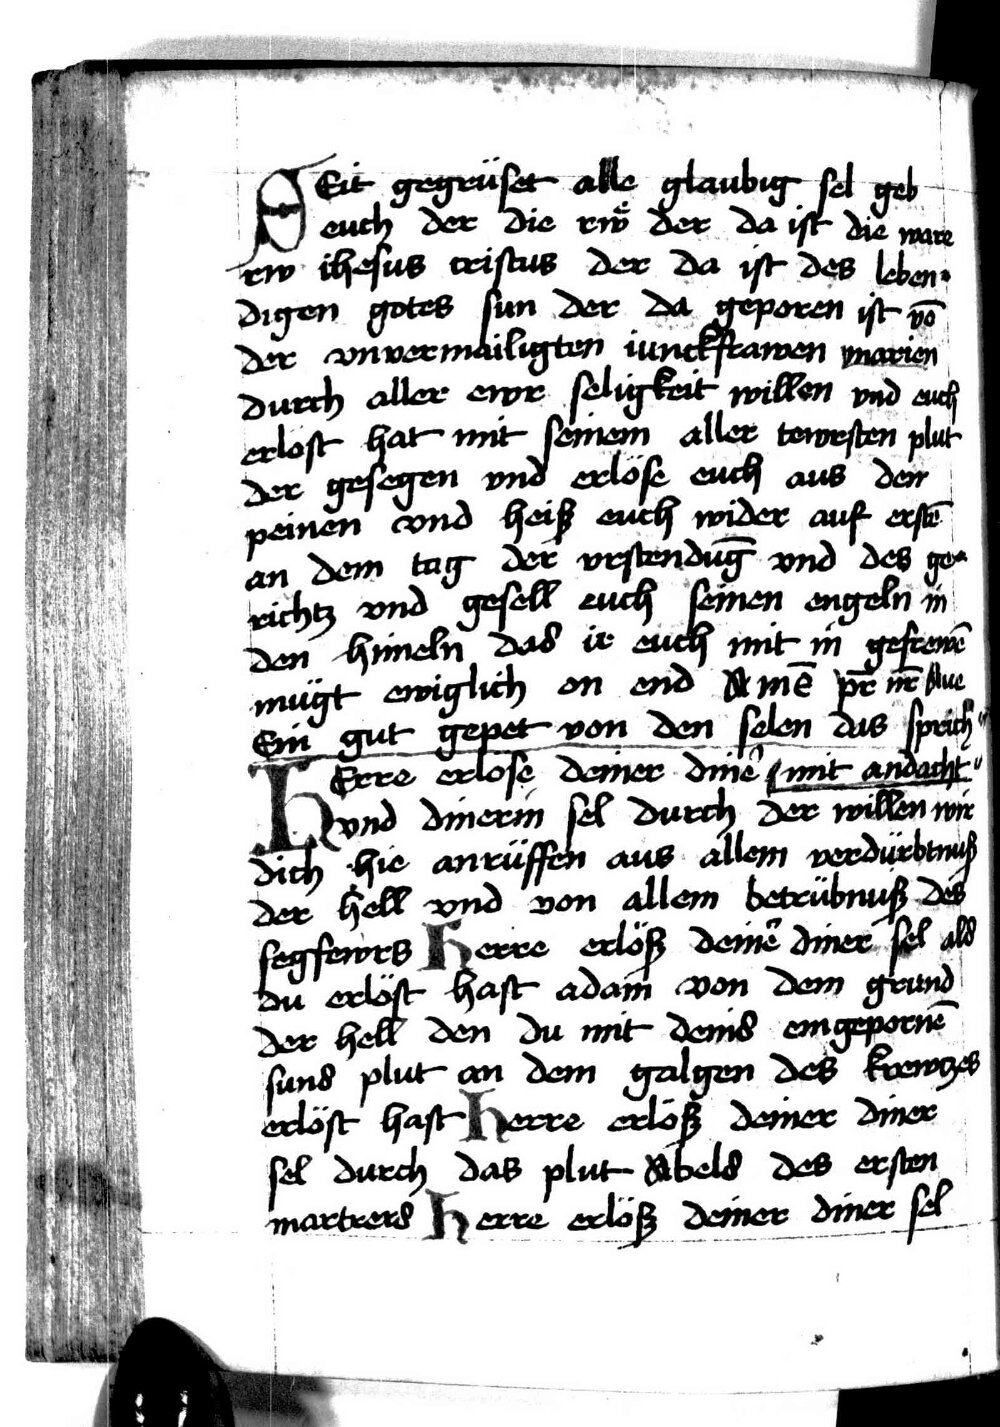 SEit gegrüset alle glaubig sel geb
euch der die rẘ der da ist die ware
rw ihesus cristus der da ist des leben-
digen gotes sun der da geporen ist vō
der vnvermailigten iunckfrawen marien
durch aller ewr seligkeit willen vnd euch
erlost hat mit seinem aller tewrsten plut
der gesegen vnd erlöse euch aus den
peinen vnd heiß euch wider auf erstē
an dem tag der vrstendūg vnd des ge-
richtz vnd gesell euch seinen engeln in
den himeln das ir euch mit in gefrewē
mügt ewiglich on end Amē pr̄ nr̄ Aue
Ein gut gepet von den selen das sprich
HErre erlose deiner dinē mit andacht
vnd dinerin sel durch der willen wir
dich hie anrüffen aus allem verdürbtnuß
der hell vnd von allem betrübnuß des
segfewrs Herre erlöß deinē diner sel als
du erlöst hast adam von dem grund
der hell den du mit deins eingepornē
suns plut an dem galgen des krewtzes
erlöst hast Herre erlöß deiner diner
sel durch das plut Abels des ersten
martrers Herre erlöß deiner diner sel